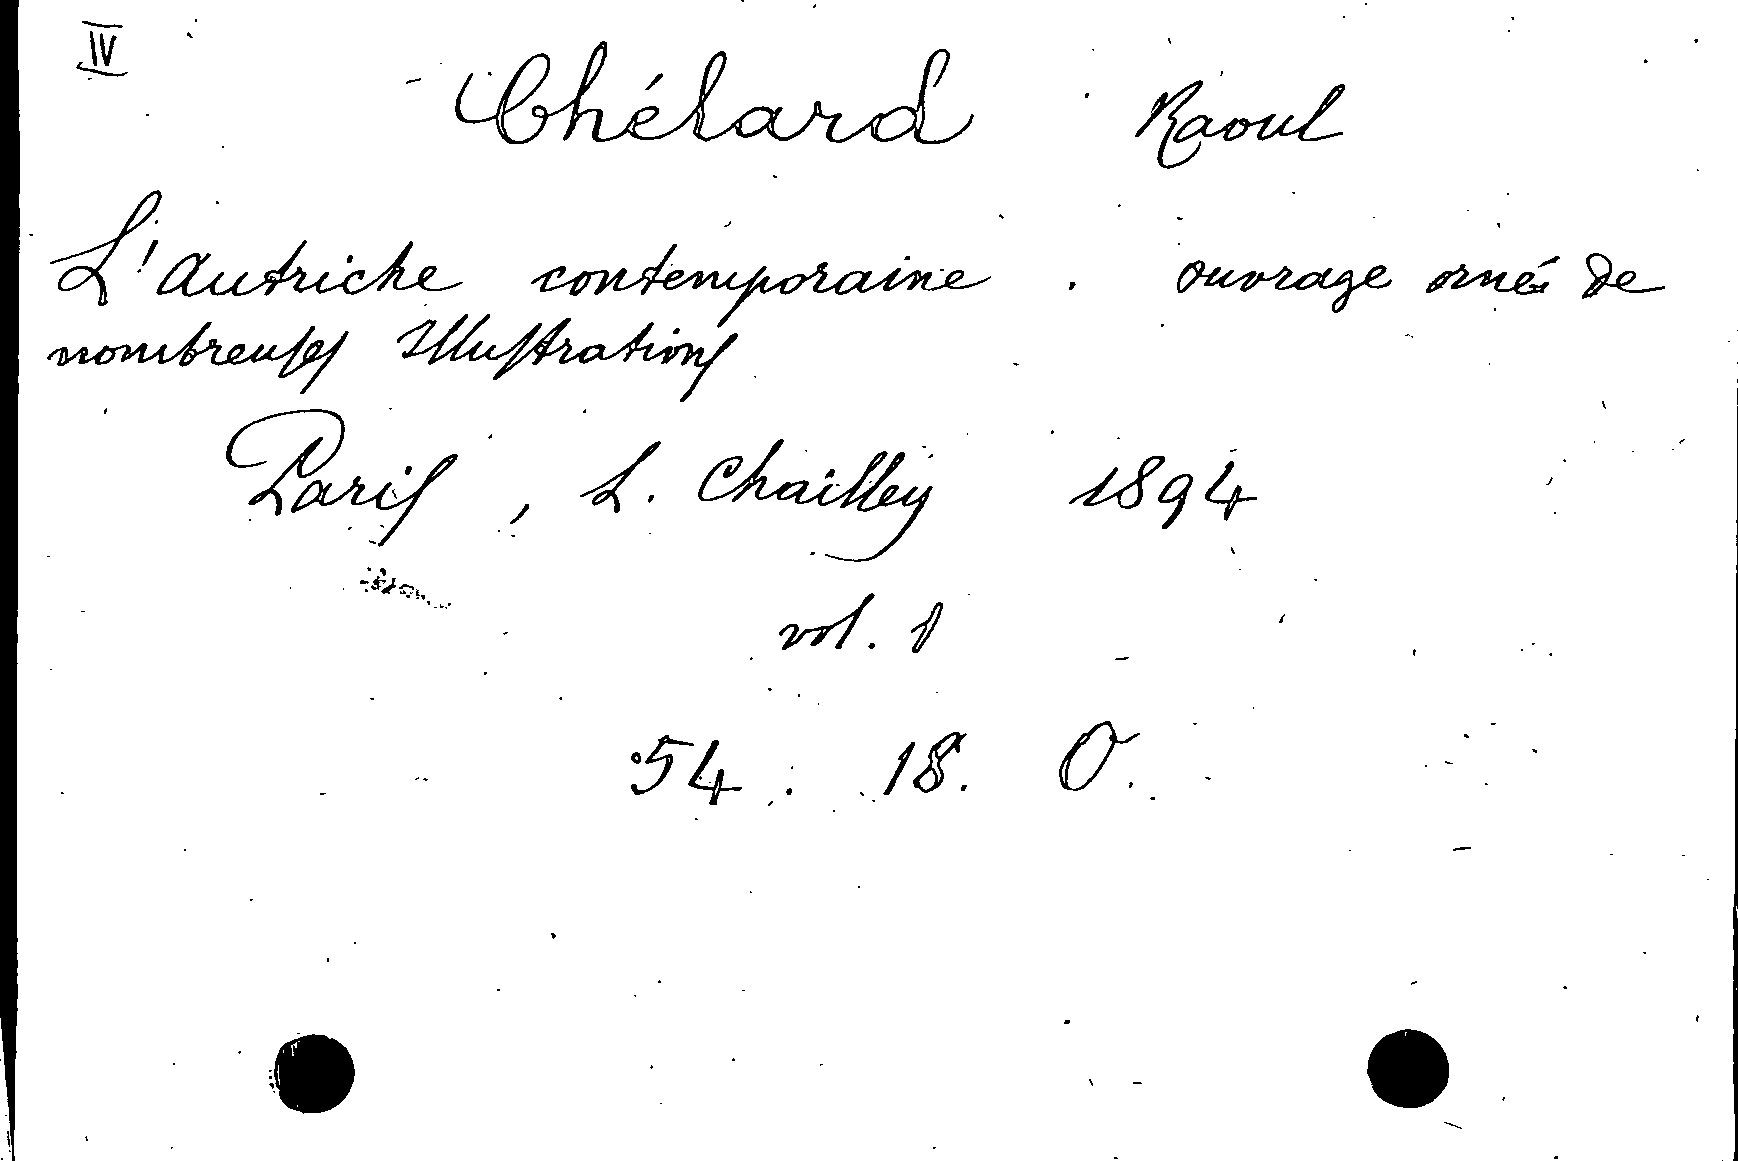 IV
Chélard Raoul
L'Autriche contemporaine. ouvrage orné de
nombreuses Illustrations
Paris, L. Chailley 1894
vol. 1
54. 18. O.